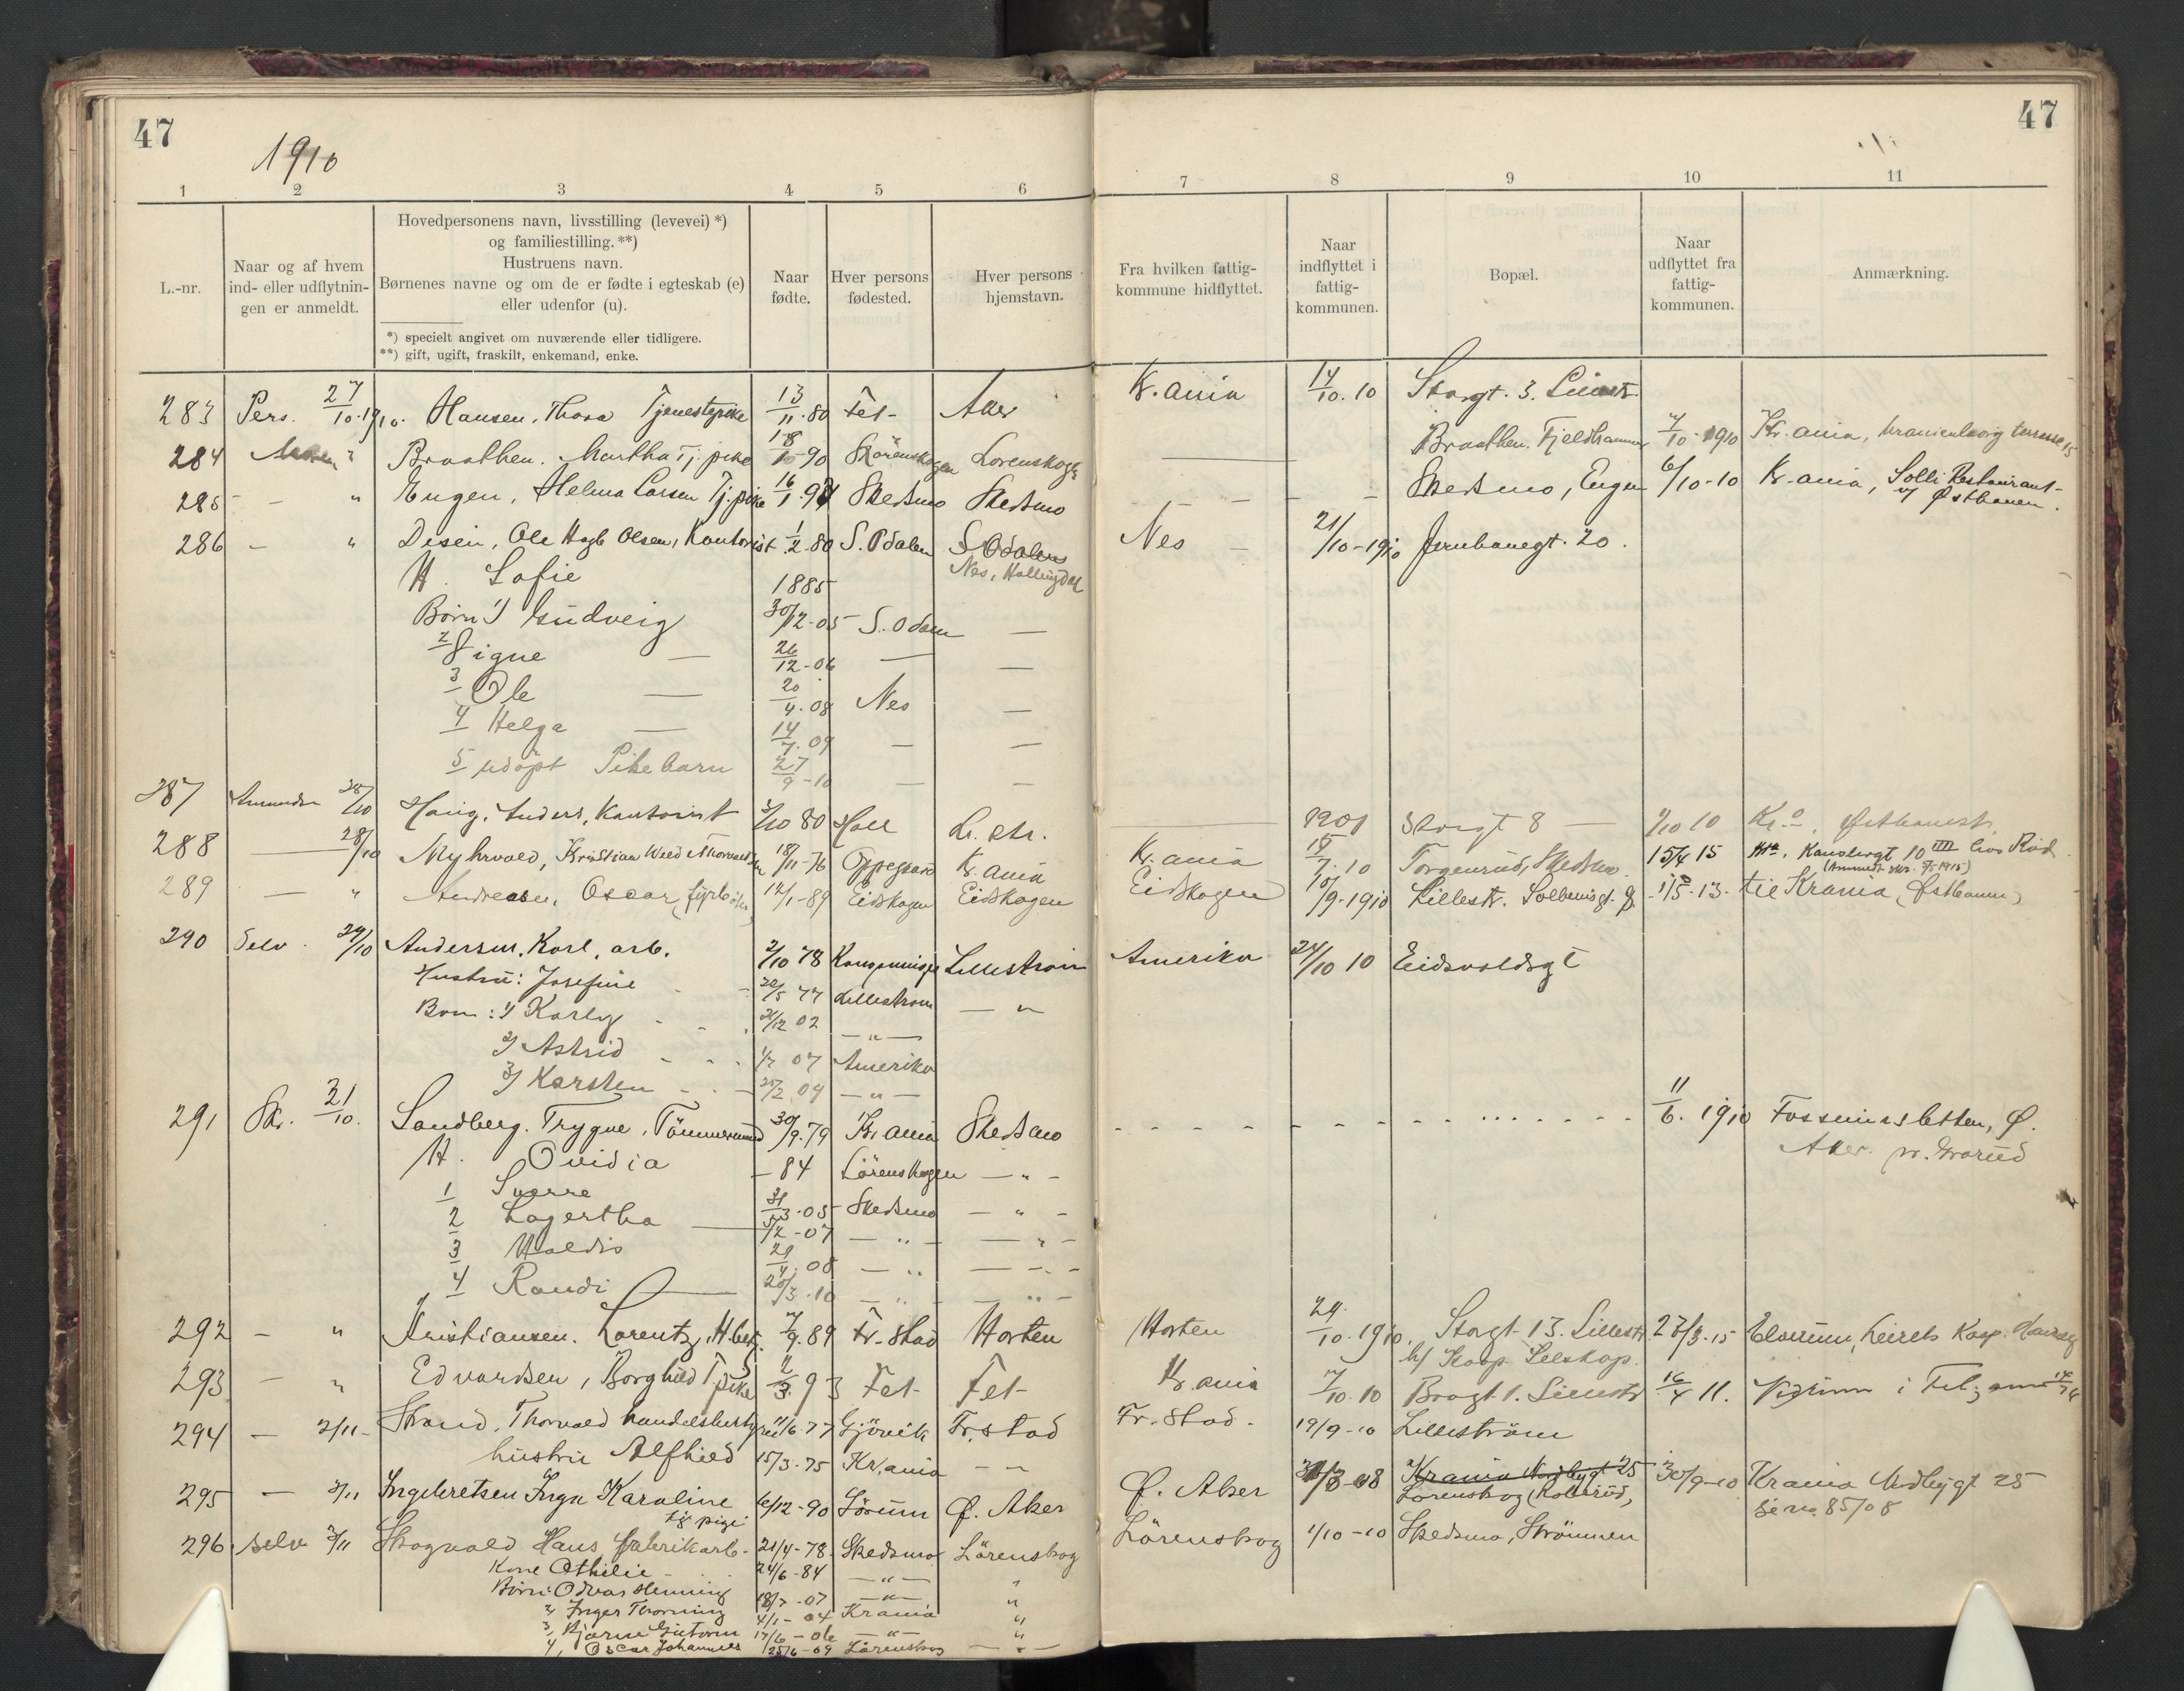 47
47
1910
1
2
3
4
5
6
7
8
9
10
11
L.-nr.
Naar og af hvem ind- eller udflytnin-gen er anmeldt.
Hovedpersonens navn, livsstilling (levevei) *)
og familiestilling. **)
Hustruens navn.
Børnenes navne og om de er fødte i egteskab (e)
eller udenfor (u).
*) specielt angivet om nuværende eller tidligere.
**) gift, ugift, fraskilt, enkemand, enke.
Naar fødte.
Hver persons fødested.
Hver persons hjemstavn.
Fra hvilken fattig-kommune hidflyttet.
Naar indflyttet i fattig-kommunen.
Bopæl.
Naar udflyttet fra fattig-kommunen.
Anmærkning.
283 Pers. 27/10-1910. Hansen, Thora Tjenestepike 13/11.80 Fet- Aker Kr.ania 14/10.10 Storgt. 3. Lillestr.
284 " Braathen. Martha Tj. pike 90 Lørenskogen Lorenskog Braathen. Fjeldhammer 7/10-1910 Kr.ania, Uranienborg terrasse 15
285 - " Engen, Helma Larsen Tj. pike 16/1.91 Skedsmo Skedsmo - - - Skedsmo, Engen 6/10-10 Kr.ania, Solli Restaurant v/ Østbanen.
286 - " Disen, Ole Hagb Olsen, Kontorist 1/2.80 S. Odalen S Odalen Nes - 21/10-1910 Jernbanegt. 20.
H. Sofie 1885 Nes, Hallingdal
Børn 1) Gudveig 30/12-05 S. Odalen —
2 Signe — 26/12-06 — —
3 Ole — 20/4.08 Nes —
4 Helga — 14/7.09 — —
5 udøpt Pikebarn 27/9-10 — —
287 Amundsen 28/10 Haug, Anders, Kontorist 3/10 80 Høll L. str. — 1901 Storgt 8 — 1/10 10 Kr.a, Østbanestr.
288 — 28/10 Myhrvold, Kristian 18/11-76 Oppegaard Kr.ania Kr.ania 15/7.10 Torgerrud, Skedsmo. 15/4 15 Kra, 10 III hos Rød
289 — " Andreasen, Oscar, fyrbøter 12/1-89 Eidskogen Eidskogen Eidskogen 10/9-1910 Lillestr. Solbergsgt. 1/5-13- til Krania (Østbanen)
290 Selv. 29/10 Andersen, Karl, arb. 2/10 78 Kongsvinger Lillestrøm Amerika 24/10 10 Eidsvoldsgt
Hustru: Josefine - - 22/5 77 Lillestrøm — "
Born: 1) Karly - - 21/12 02 — " —
2) Astrid - - 1/7 07 Amerika
3) Karsten - - 25/2 09 — " —
291 Sk. 31/10. Sandberg. Trygve, Tömmermand 30/9.79 Kr.ania Skedsmo - - - - - 11/6. 1910 Fossumsletten, Ø.
H. Ovidia - 84 Lörenskogen — " - Aker pr. Grorud
1 Sverre 31/3.05 Skedsmo — " -
2 Lagertha — 5/2-07 — " - — " -
3 Valdis 29/4.08 — " — " -
4 Randi — 20/3.10 — " - — " -
292 - " Kristiansen. Lorentz, H.betj. 7/9.89 Fr-stad Horten Horten 29/10.1910. Storgt 13. Lillestr. 23/3-15 Elverum, Leirets Koop. Handelsl
h/ Koop. Selskap.
293 - " Edvardsen, Borghild Tj. pike 2/3.93 Fet- Fet- Kr.ania 7/10.10 Brogt 1. Lillestr 16/4 11. i Fet;
294 — 2/11- Strand, Thorvald handelsbestyrer 11/6-77 Gjövik Fr.stad Fr. stad. 19/9-10 Lilleström
hustru Alfhild 15/3-75 Kr.ania — —
295 — 3/11 Ingebretsen Inga Karoline 6/12-90 Sörum Ø. Aker Ø. Aker 08 Krania Nordbygt 25 30/9-10 Krania Nordbygt 25
tj pige Lörenskog (Robsrud, se no. 85/08
296 selv 3/11 Skogvold Hans fabrikarb- 21/4-78- Skedsmo Lörenskog Lörenskog 1/10-10 Skedsmo, Strömmen
Kone Othilie - 24/6-84 — " — "
Börn: Odvar Henning 18/7-07 — " — "
2, Inger Thorning 4/1-04 Krania "
3, Bjarne Gutorm 17/6-06 — " — "
4, Oscar Johannes 25/6-09 Lörenskog — " —